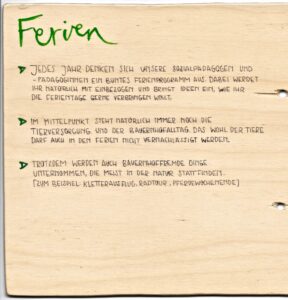 Ferien
JEDES JAHR DENKEN SICH UNSERE SOZIALPÄDAGOGEN UND
-PÄDAGOGINNEN EIN BUNTES FERIENPROGRAMM AUS. DABEI WERDET
IHR NATÜRLICH MIT EINBEZOGEN UND BRINGT IDEEN EIN, WIE IHR
DIE FERIENTAGE GERNE VERBRINGEN WOLLT.
IM MITTELPUNKT STEHT NATÜRLICH IMMER NOCH DIE
TIERVERSORGUNG UND DER BAUERNHOFALLTAG. DAS WOHL DER TIERE
DARF AUCH IN DEN FERIEN NICHT VERNACHLÄSSIGT WERDEN.
TROTZDEM WERDEN AUCH BAUERNHOFFREMDE DINGE
UNTERNOMMEN, DIE MEIST IN DER NATUR STATTFINDEN.
(ZUM BEISPIEL: KLETTERAUSFLUG, RADTOUR, PFERDEWOCHENENDE)